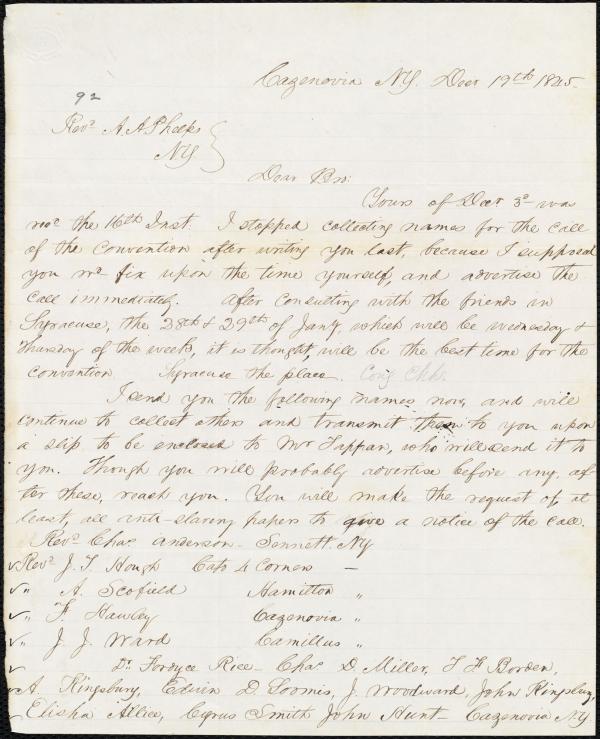 Cazenovia N.Y. Decr 19th 1845.
92
Revd A. A Phelps
N.Y.
Dear Bro:
Yours of Decr 3d was
recd the 16th Inst. I stopped collecting names for the call
of the Convention after writing you last, because I supposed
you wd fix upon the time yourself, and advertise the
call immediately. After consulting with the friends in
Syracuse, the 28th & 29th of Jany, which will be wednesday &
thursday of the week, it is thought, will be the best time for the
convention Syracuse the place. Cong Chh.
I send you the following names now, and will
continue to collect others and transmit them to you upon
a slip to be enclosed to Mr Tappan, who will send it to
you. Though you will probably advertise before any, af-
ter these, reach you. You will make the request of, at
least, all anti-slavery papers to give a notice of the call.
Revd Chas Anderson - Sennett. NY
✓ Revd J. T. Hough Cato 4 Corners —
✓ " A. Scofield Hamilton "
✓ " F. Hawley Cazenovia "
✓ " J. J. Ward Camillus "
✓ Dr Fordyce Rice - Chas D. Miller, F. Borden,
✓ A. Kingsbury, Edwin D. Loomis, J. Woodward, John Kingsbury,
Elisha Allice, Cyrus Smith John Hunt - Cazenovia NY.